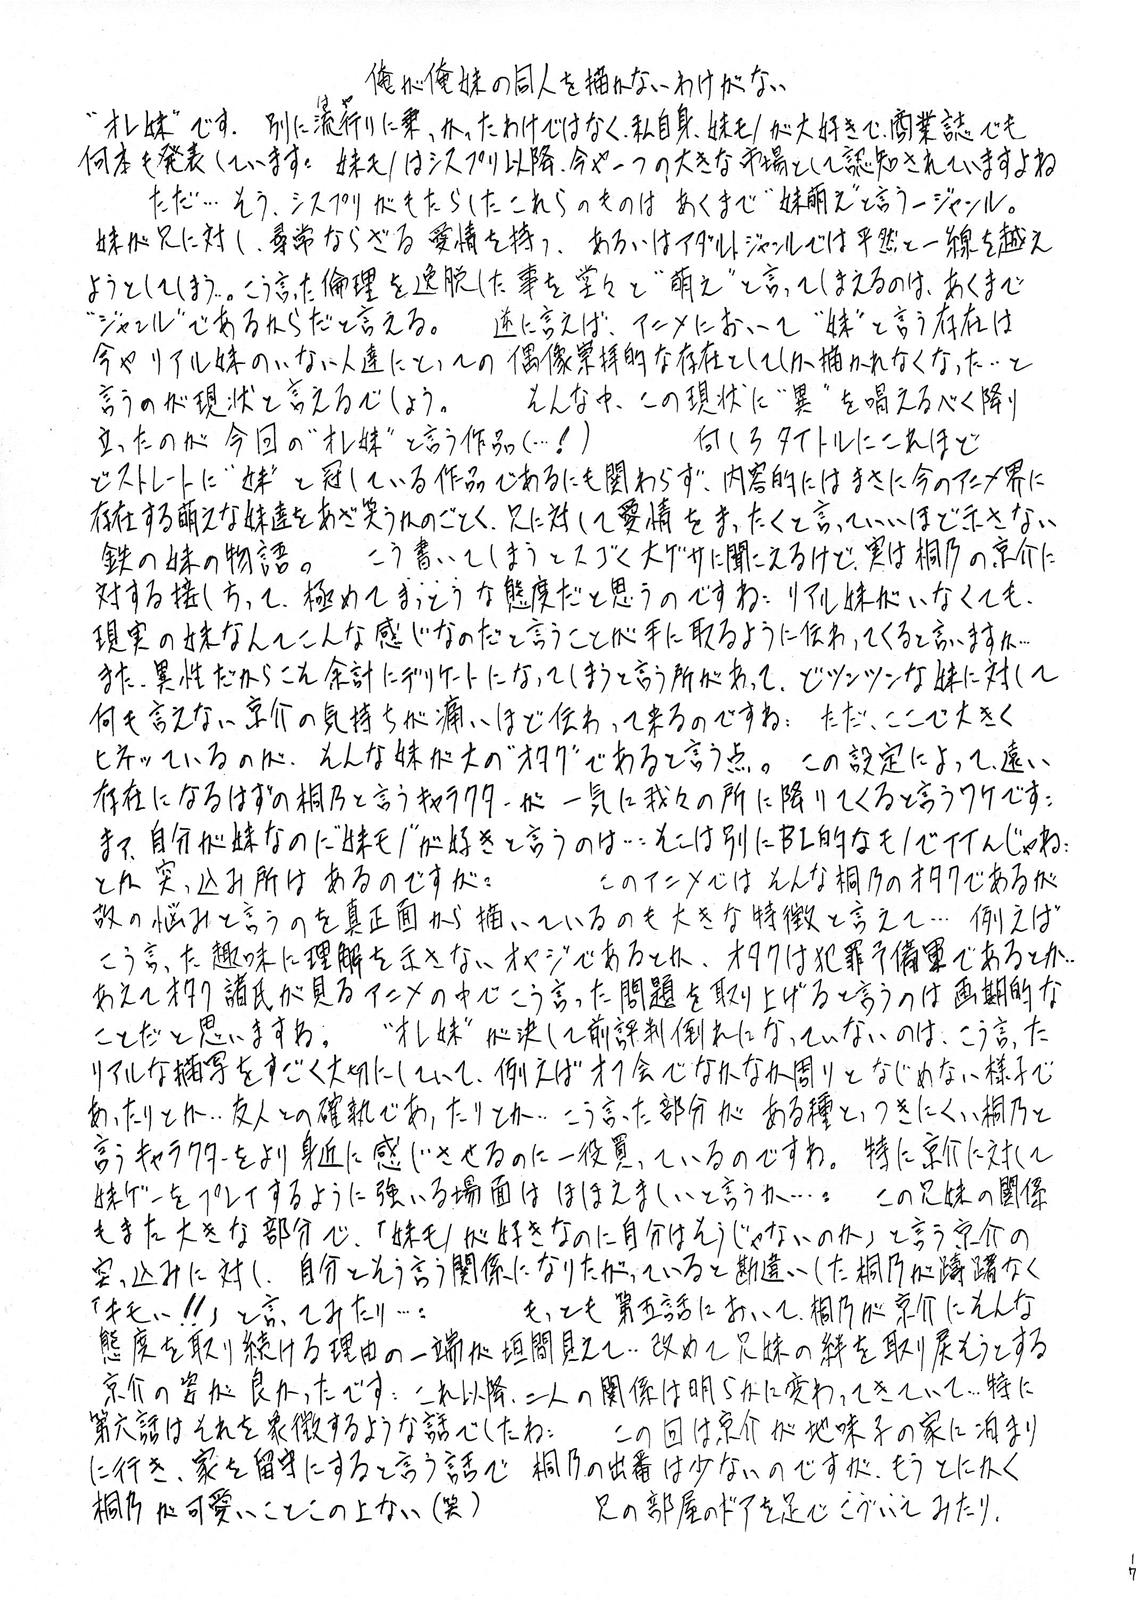 俺が俺妹の同人を描かないわけがない
"オレ妹"です. 別に流行(はや)りに乗っかったわけではなく、私自身、妹モノが大好きで、商業誌でも
何本も発表しています: 妹モノはシスプリ以降、今や一つの大きな市場として認知されていますよね
ただ… そう、シスプリがもたらしたこれらのものは あくまで"妹萌え"と言う一ジャンル。
妹が兄に対し、尋常ならざる愛情を持つ、 あるいはアダルトジャンルでは平然と一線を越え
ようとしてしまう…。こう言った倫理を逸脱した事を堂々と"萌え"と言ってしまえるのは、あくまで
"ジャンル"であるからだと言える。 逆に言えば、アニメにおいて"妹"と言う存在は
今やリアル妹のいない人達にとっての偶像崇拝的な存在としてしか描かれなくなった…と
言うのが現状と言えるでしょう。 そんな中、この現状に"異"を唱えるべく降り
立ったのが今回の"オレ妹"と言う作品(…!) 何しろタイトルにこれほど
どストレートに"妹"と冠している作品であるにも関わらず、内容的にはまさに今のアニメ界に
存在する萌えな妹達をあざ笑うかのごとく、兄に対して愛情をまったくと言っていいほど示さない
鉄の妹の物語。 こう書いてしまうとスゴく大ゲサに聞こえるけど、実は桐乃の京介に
対する接し方って、極めてまっとうな態度だと思うのですね: リアル妹がいなくても、
現実の妹なんてこんな感じなのだと言うことが手に取るように伝わってくると言いますか…
また、異性だからこそ余計にデリケートになってしまうと言う所があって、どツンツンな妹に対して
何も言えない京介の気持ちが痛いほど伝わって来るのですね: ただ、ここで大きく
ヒネッているのが、そんな妹が大の"オタク"であると言う点。 この設定によって、遠い
存在になるはずの桐乃と言うキャラクターが一気に我々の所に降りてくると言うワケです:
まァ、自分が妹なのに"妹モノ"が好きと言うのは…: そこは別にBL的なモノでイイんじゃね:
とか 突っ込み所は あるのですが: このアニメではそんな桐乃のオタクであるが
故の悩みと言うのを真正面から描いているのも大きな特徴と言えて… 例えば
こう言った趣味に理解を示さないオヤジであるとか、オタクは犯罪予備軍であるとか…
あえてオタク諸氏が見るアニメの中でこう言った問題を取り上げると言うのは画期的な
ことだと思いますね。 "オレ妹"が決して前評判倒れになっていないのは、こう言った
リアルな描写をすごく大切にしていて、例えばオフ会でなかなか周りとなじめない様子で
あったりとか‥友人との確執であったりとか‥こう言った部分が ある種とっつきにくい桐乃と
言うキャラクターをより身近に感じさせるのに一役買っているのですね。 特に京介に対して
妹ゲーをプレイするように強いる場面はほほえましいと言うか…: この兄妹の関係
もまた大きな部分で、「妹モノが好きなのに自分はそうじゃないのか」と言う京介の
突っ込みに対し、自分とそう言う関係になりたがっていると勘違いした桐乃が躊躇なく
「キモい!!」と言ってみたり…: もっとも第五話において、桐乃が京介にそんな
態度を取り続ける理由の一端が垣間見えて‥改めて兄妹の絆を取り戻そうとする
京介の姿が良かったです: これ以降、二人の関係は明らかに変わってきていて…特に
第六話はそれを象徴するような話でしたね: この回は京介が地味子の家に泊まり
に行き、家を留守にすると言う話で 桐乃の出番は少ないのですが、もうとにかく
桐乃が可愛いことこの上ない(笑) 兄の部屋のドアを足でこづいてみたり.
17